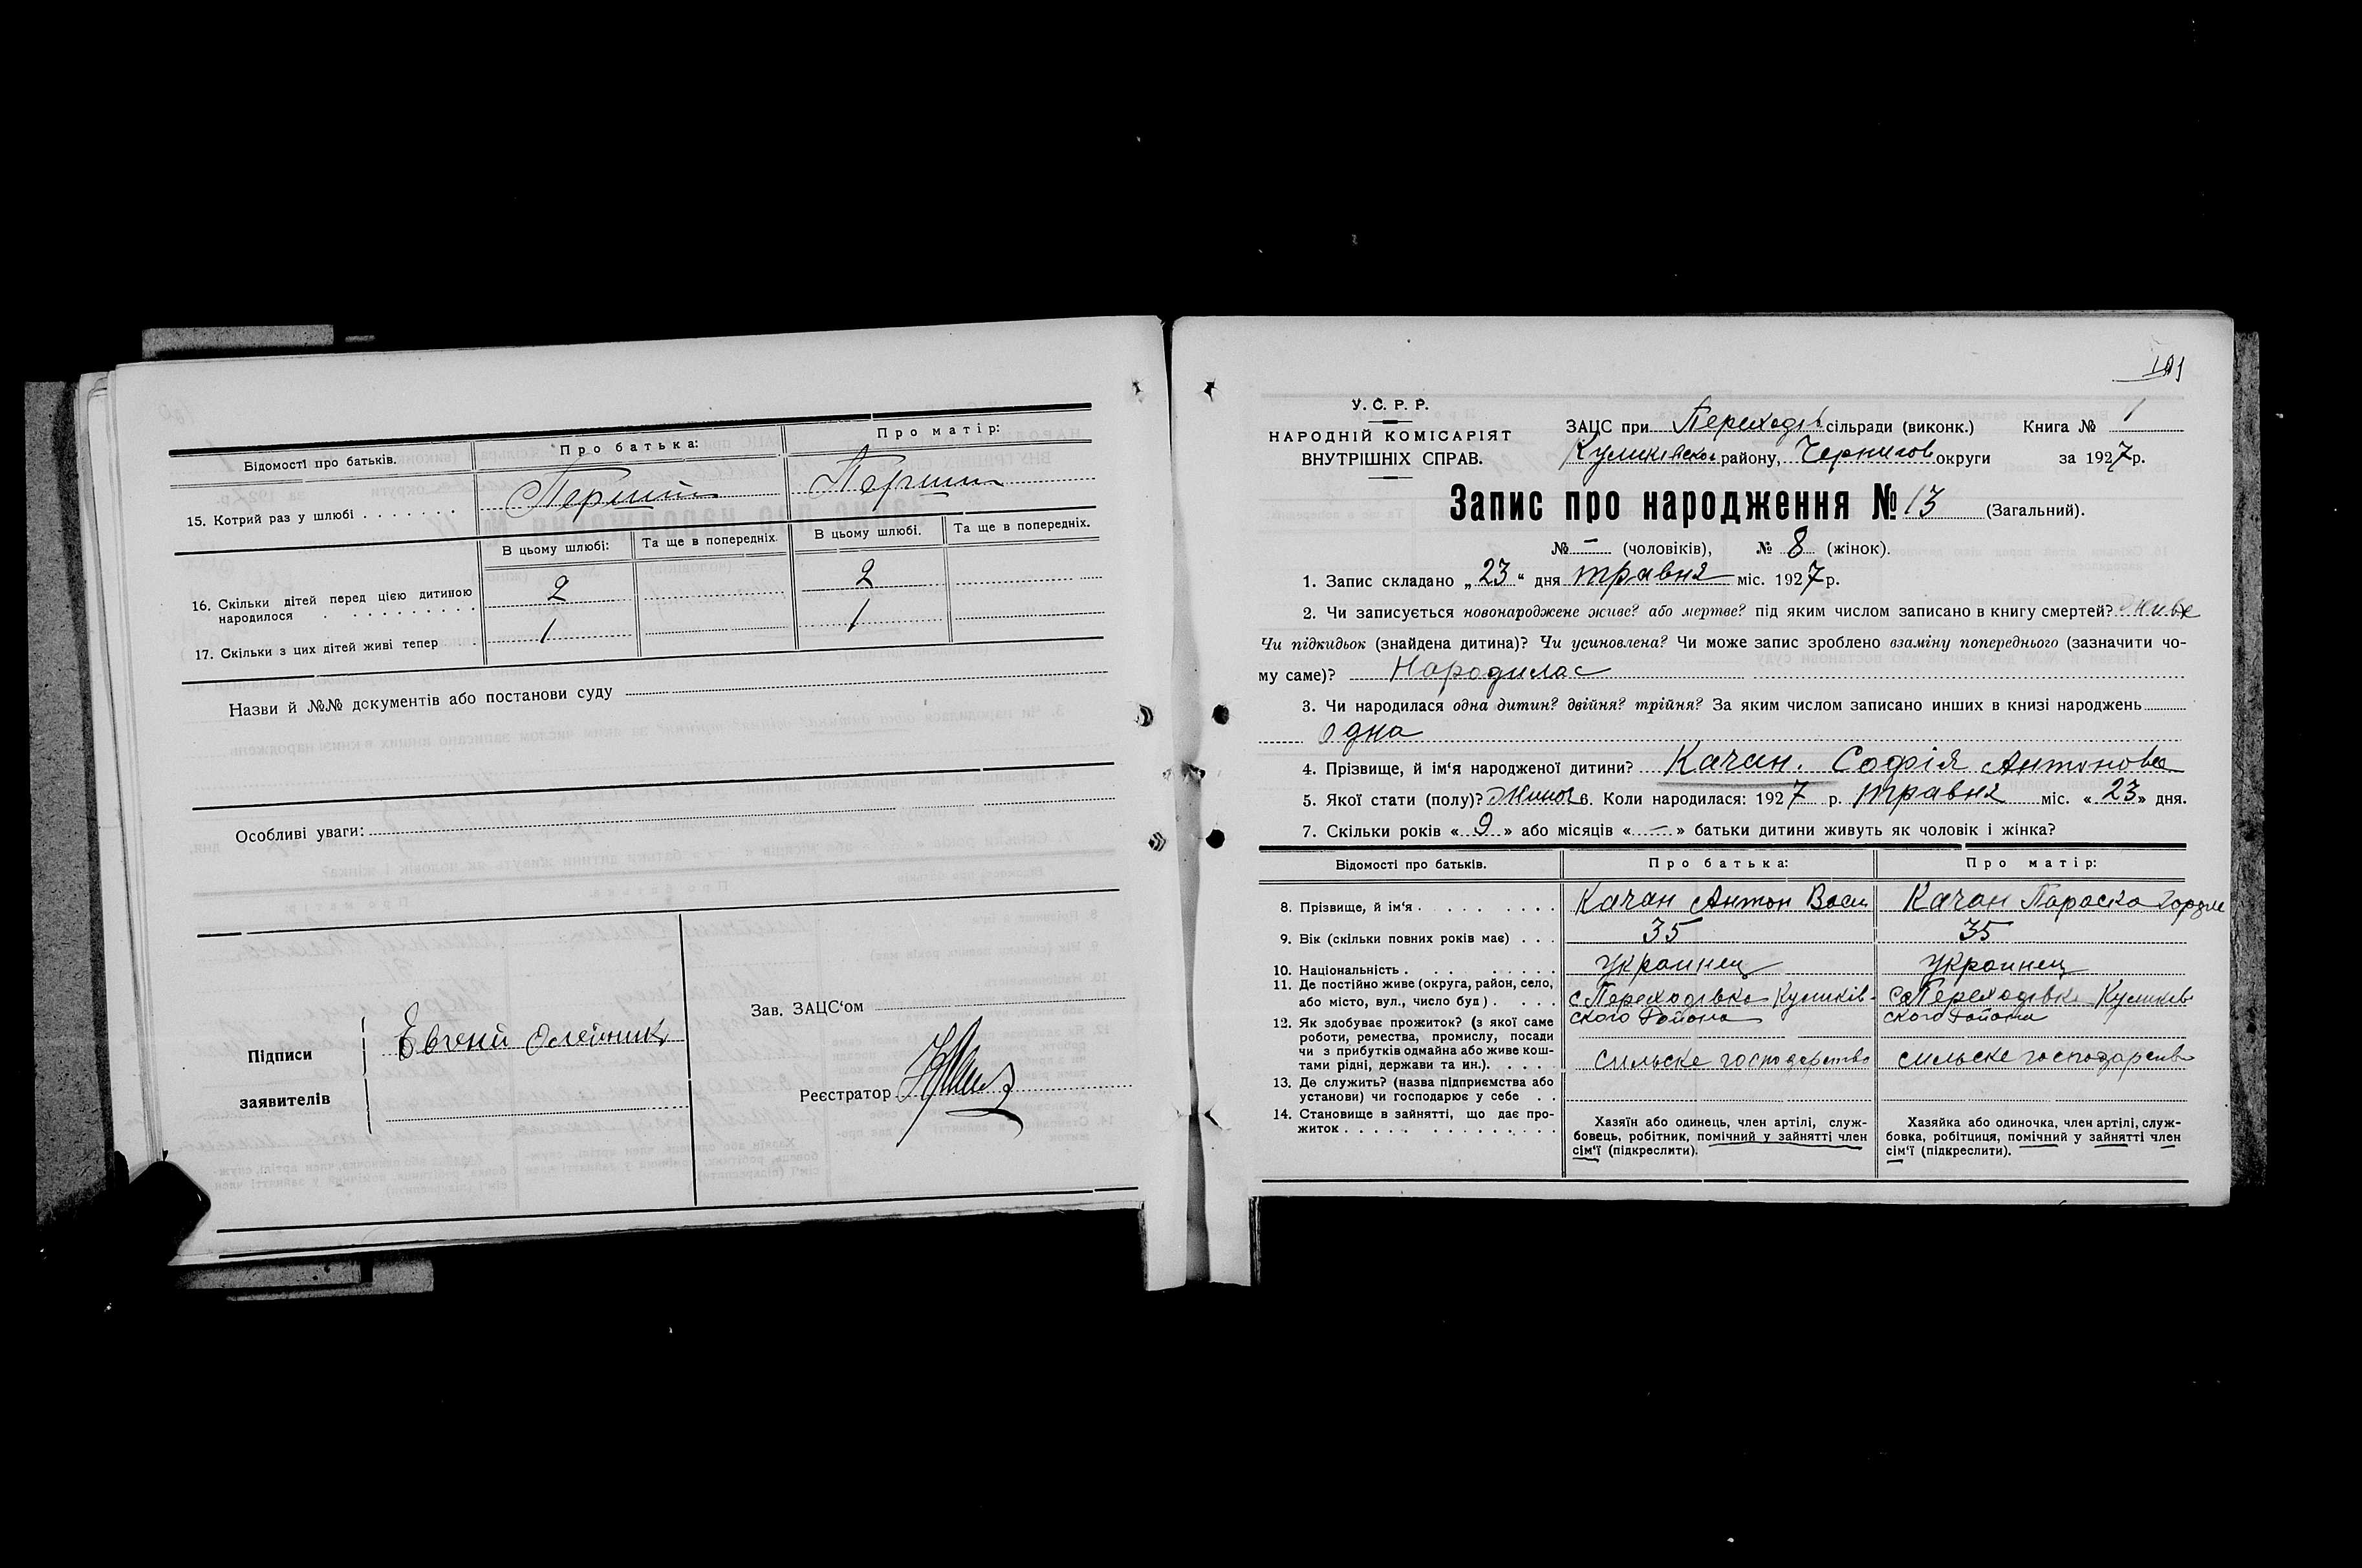 Відомості про батьків. Про батька: Про матір:
15. Котрий раз у шлюбі . . . . . . . Перший Перший
В цьому шлюбі: Та ще в попередніх. В цьому шлюбі. Та ще в попередніх.
16. Скільки дітей перед цією дитиною
народилося . . . . . . . . . 2 2
17. Скільки з цих дітей живі тепер . 1 1
Назви й №№ документів або постанови суду
Особливі уваги:
Підписи
заявителів
Евгений Олейник
Зав. ЗАЦС‘ом
Реєстратор
У. С. Р. Р.
НАРОДНІЙ КОМІСАРІЯТ
ВНУТРІШНІХ СПРАВ.
ЗАЦС при Переходів сільради (виконк.) Книга № 1
Куликівског району, Чернигов округи за 1927 р.
Запис про народження № 13 (Загальний).
№ — (чоловіків), № 8 (жінок).
1. Запис складано „23“ дня травня міс. 1927 р.
2. Чи записується новонароджене живе? або мертве? під яким числом записано в книгу смертей? живе
Чи підкидьок (знайдена дитина)? Чи усиновлена? Чи може запис зроблено взаміну попереднього (зазначити чо-
му саме)? Народилас
3. Чи народилася одна дитин? двійня? трійня? За яким числом записано инших в книзі народжень
одна
4. Прізвище, й ім‘я народженої дитини? Качан. Софія Антонова
5. Якої стати (полу)? Жіноч 6. Коли народилася: 1927 р. травня міс. «23» дня.
7. Скільки років «9» або місяців «—» батьки дитини живуть як чоловік і жінка?
Відомості про батьків. Про батька: Про матір:
8. Прізвище, й ім‘я . . . . . . . Качан Антон Васи Качан Параска Гордие
9. Вік (скільки повних років має) . . . 35 35
10. Національність . . . . . . . . Украинец Украинец
11. Де постійно живе (округа, район, село,
або місто, вул., число буд) . . . .
с Переходівка Куликів-
ского Района
с Переходівка Куликів
ского Района
12. Як здобуває прожиток? (з якої саме
роботи, ремества, промислу, посади
чи з прибутків одмайна або живе кош-
тами рідні, держави та ин.). . . . .
сильске господарство сильске господарств
13. Де служить? (назва підприємства або
установи) чи господарює у себе . .
14. Становище в зайнятті, що дає про-
житок . . . . . . . . . . . . . .
Хазяїн або одинець, член артілі, служ-
бовець, робітник, помічний у зайнятті член
сім‘ї (підкреслити).
Хазяйка або одиночка, член артілі, служ-
бовка, робітциця, помічний у зайнятті член
сім‘ї (підкреслити).